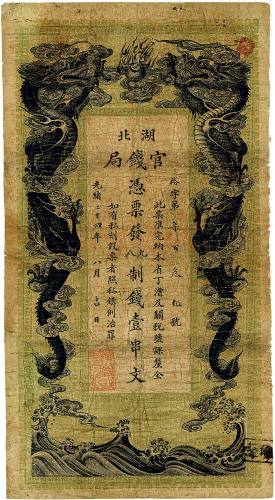 湖北
官錢局
憑票發九八制錢壹串文
此票准完納本省丁漕及關稅鹽課釐金
如有私刻假票者照私鑄例治罪
光緒二十四年八月　日
字第　百　號